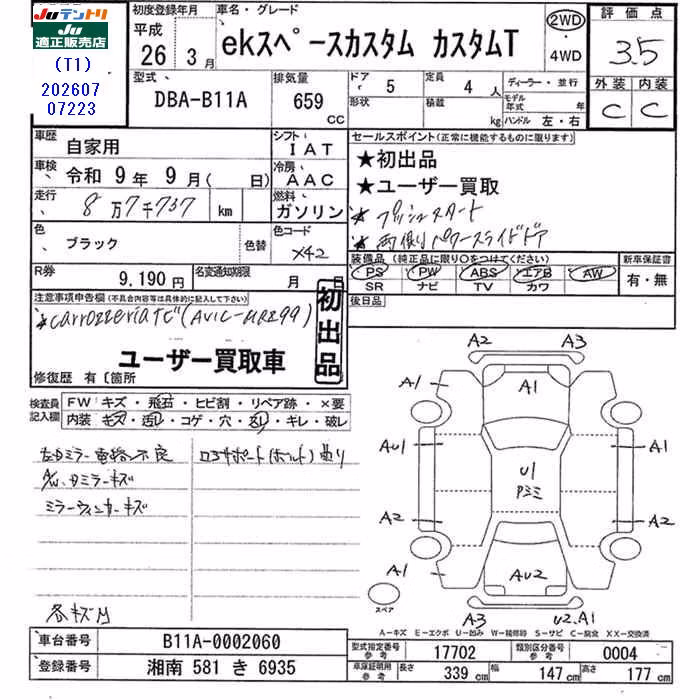 Ju テントリ
JU 適正販売店
(T1)
202607
07223
初度登録年月 車名・グレード 評価点
平成 26年 3月 ekスペースカスタム カスタムT 2WD・4WD 3.5
型式 DBA-B11A 排気量 659 CC ドア 5 形状 定員 4人 積載 kg ディーラー・並行 モデル年式 年 ハンドル 左・右 外装 C 内装 C
車歴 自家用 シフト IAT セールスポイント(正常に機能するものに限ります)
車検 令和 9年 9月( 日) 冷房 AAC ★初出品
★ユーザー買取
走行 8万7千737 km 燃料 ガソリン ★プッシュスタート
色 ブラック 色替 色コード X42 ★両側パワースライドドア
装備品(純正品に限り○をつけてください) 新車保証書
PS PW ABS エアB AW 有・無
SR ナビ TV カワ
R券 9,190円 名変通知期限 月 日 後日品
注意事項申告欄(不具合内容等は具体的に記入して下さい)
★carrozzeriaナビ(AVIC-MRZ99) 初出品
ユーザー買取車
修復歴 有〔箇所
検査員記入欄 FW キズ・飛石・ヒビ割・リペア跡・×要
内装 キズ・汚レ・コゲ・穴・スレ・キレ・破レ
左Dミラー電格不良 ロアサポート(ホルト)曲り
A/W、Dミラーキズ
ミラーウィンカーキズ
各キズ凹
A2 A3
A1 A1
AU1 A1
U1
Pミミ
A2 A2
A1 AU2 A1
スペア
A3 U2.A1
A-キズ E-エクボ U-凹み W-補修跡 S-サビ C-腐蝕 XX-交換済
車台番号 B11A-0002060 型式指定番号 参考 17702 類別区分番号 参考 0004
登録番号 湘南 581 き 6935 車庫証明用 参考 長さ 339 cm 幅 147 cm 高さ 177 cm